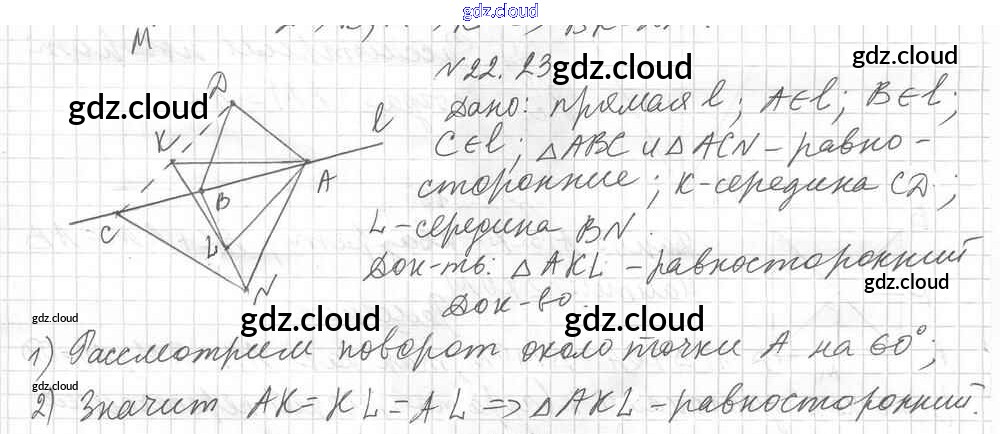 gdz.cloud
M
N 22.23
Дано: прямая l; A∈l; B∈l;
C∈l; △ABC и △ACN – равно-
сторонние; K-середина CD;
L-середина BN.
Док-ть: △AKL – равносторонний
Док-во
1) Рассмотрим поворот около точки A на 60°;
2) Значит AK = KL = AL => △AKL – равносторонний.
D
K
l
A
B
C
L
N
gdz.cloud
gdz.cloud
gdz.cloud
gdz.cloud
gdz.cloud
gdz.cloud
gdz.cloud
gdz.cloud
gdz.cloud
gdz.cloud